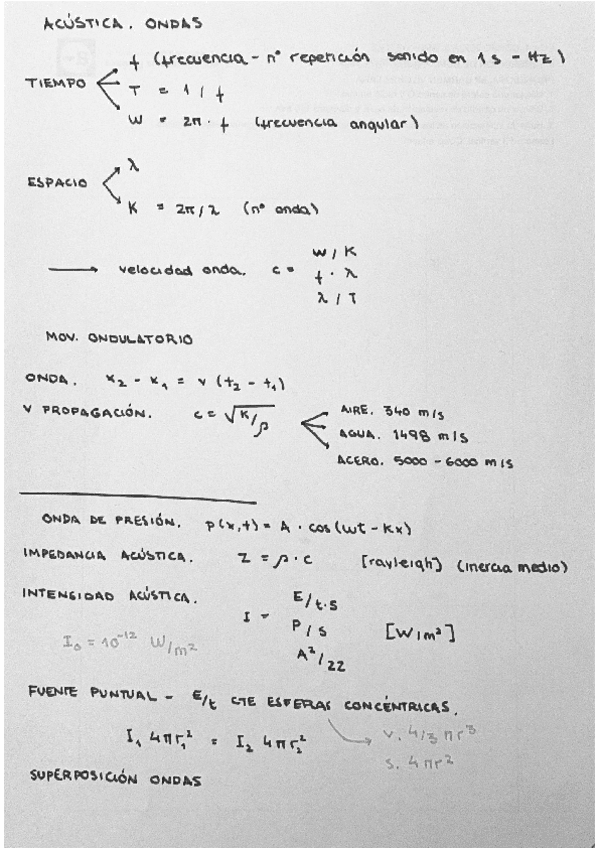 ACÚSTICA. ONDAS
f (frecuencia - nº repetición sonido en 1 s - Hz)
TIEMPO
T = 1 / f
W = 2π · f (frecuencia angular)
λ
ESPACIO
K = 2π/λ (nº onda)
W / K
→ velocidad onda. c = f · λ
λ / T
MOV. ONDULATORIO
ONDA. x₂ - x₁ = v (t₂ - t₁)
V PROPAGACIÓN. c = √K/ρ
AIRE. 340 m/s
AGUA. 1498 m/s
ACERO. 5000 - 6000 m/s
ONDA DE PRESIÓN. p(x,t) = A · cos(wt - Kx)
IMPEDANCIA ACÚSTICA. Z = ρ · c [rayleigh] (inercia medio)
INTENSIDAD ACÚSTICA. E/t·S
I = P / S [W/m²]
I₀ = 10⁻¹² W/m²
A²/2Z
FUENTE PUNTUAL - E/t CTE ESFERAS CONCÉNTRICAS.
I₁ 4πr₁² = I₂ 4πr₂²
V. 4/3 πr³
S. 4πr²
SUPERPOSICIÓN ONDAS